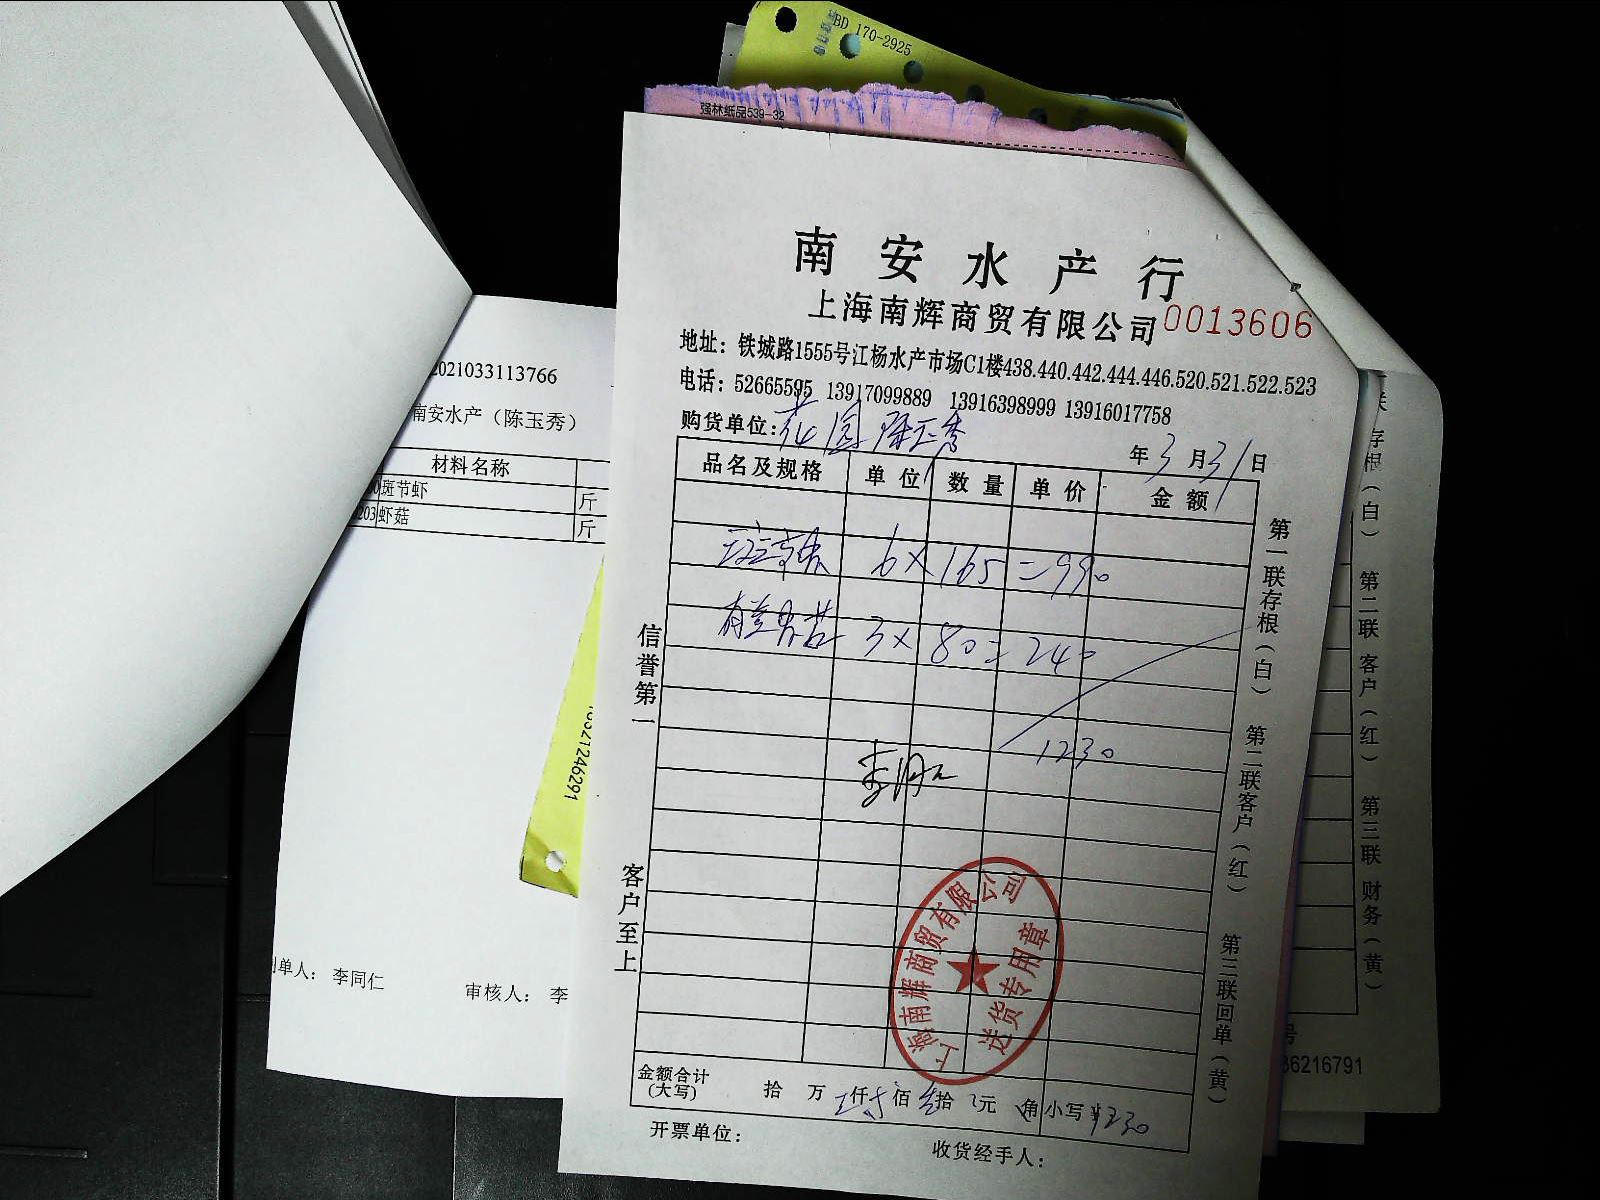 BD 170-2925
强林纸品539-32
南安水产行
上海南辉商贸有限公司 0013606
地址：铁城路1555号江杨水产市场C1楼438.440.442.444.446.520.521.522.523
电话：52665595 13917099889 13916398999 13916017758
购货单位：花园 陈玉秀
年3月31日
品名及规格 单位 数量 单价 金额
斑节虾 6×165=990
3×80=240
1230
信誉第一
客户至上
第一联存根（白） 第二联客户（红） 第三联回单（黄）
上海南辉商贸有限公司
送货专用章
金额合计（大写） 拾 万 仟 佰 拾 元 角 小写
开票单位：
收货经手人：
2021033113766
南安水产（陈玉秀）
材料名称
斑节虾 斤
203 虾菇 斤
制单人：李同仁
审核人：李
联存根（白） 第二联 客户（红） 第三联 财务（黄）
号
36216791